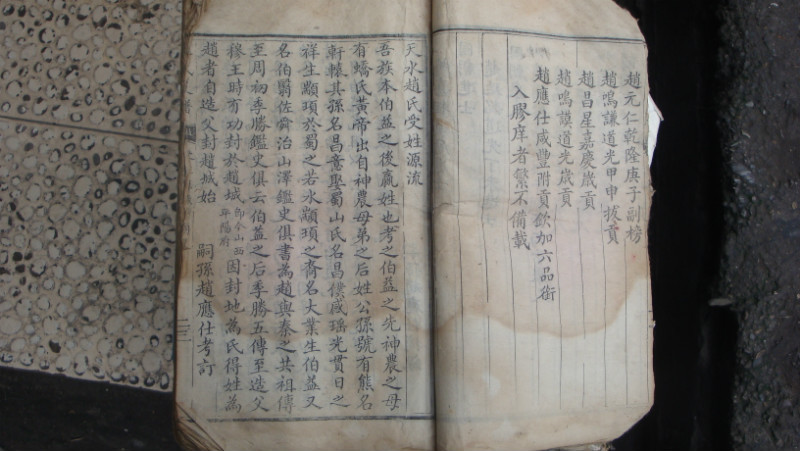 趙元仁乾隆庚子副榜
趙鳴謙道光甲申拔貢
趙昌星嘉慶歲貢
趙鳴謙道光歲貢
趙應仕咸豐附貢欽加六品銜
入膠庠者繁不備載
天水趙氏受姓源流
吾族本伯益之後嬴姓也考之伯益之先神農之母
有蟜氏黃帝出自神農母弟之后姓公孫號有熊名
軒轅其孫名昌意娶蜀山氏名昌僕感瑤光貫日之
祥生顓頊於蜀之若水顓頊之裔名大業生伯益又
名伯翳佐舜治山澤鑑史俱書為趙與秦之共祖傳
至周初季勝鑑史俱云伯益之后季勝五傳至造父
穆王時有功封於趙城即今山西平陽府因封地為氏得姓為
趙者自造父封趙城始
嗣孫趙應仕考訂